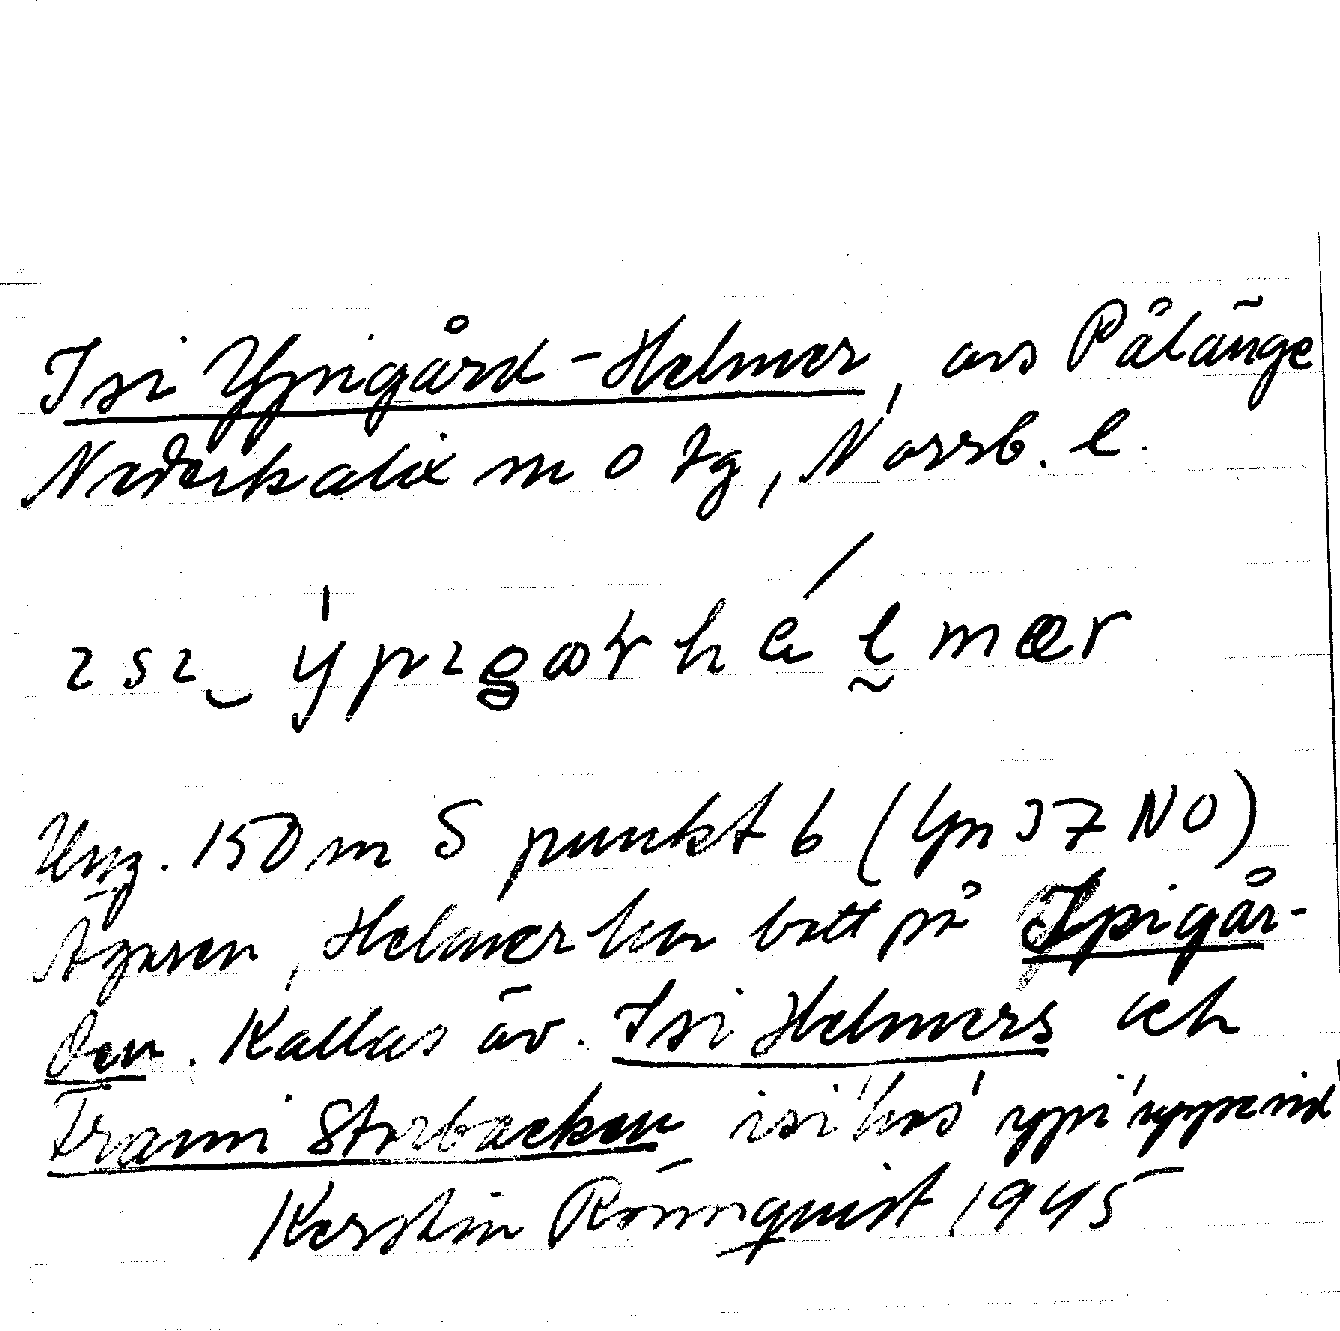 Isi Ypigård-Helmer, avs Pålänge
Nederkalix sn o tg, Norrb. l.
ɪsɪ‿ ýpɪgɷr hélmær
Ung. 150 m S punkt 6 (Yn 37 NO)
Ägaren, Helmer har bott på Ypigår-
den. Kallas äv. Isi Helmers och
Frami Storbacken isi
Kerstin Rönnquist 1945